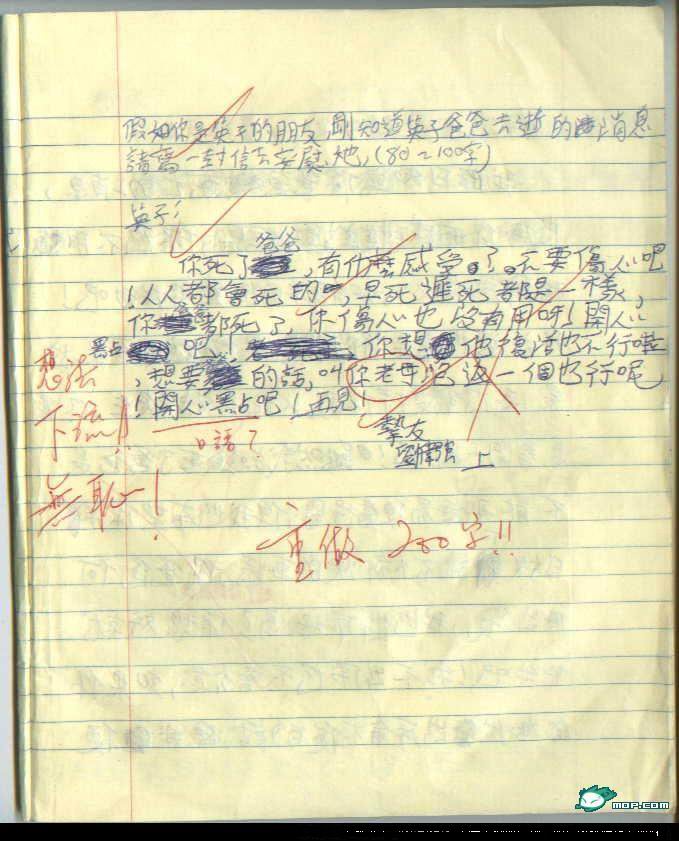 假如你是英子的朋友,剛知道英子爸爸去逝的消息
請寫一封信去安慰她,(80~100字)
英子:
爸爸
你死了,有什麼感受。了。不要傷心吧
!人人都會死的,早死遲死都是一樣,
你都死了,你傷心也沒有用呀!開心
點吧,你想他復活也不行啦
,想要的話,叫你老母 返一個也行呢
!開心點吧!再見!
摯友
上
想法
下流!!
無恥!
口語?
重做 200字!!
MOP.COM